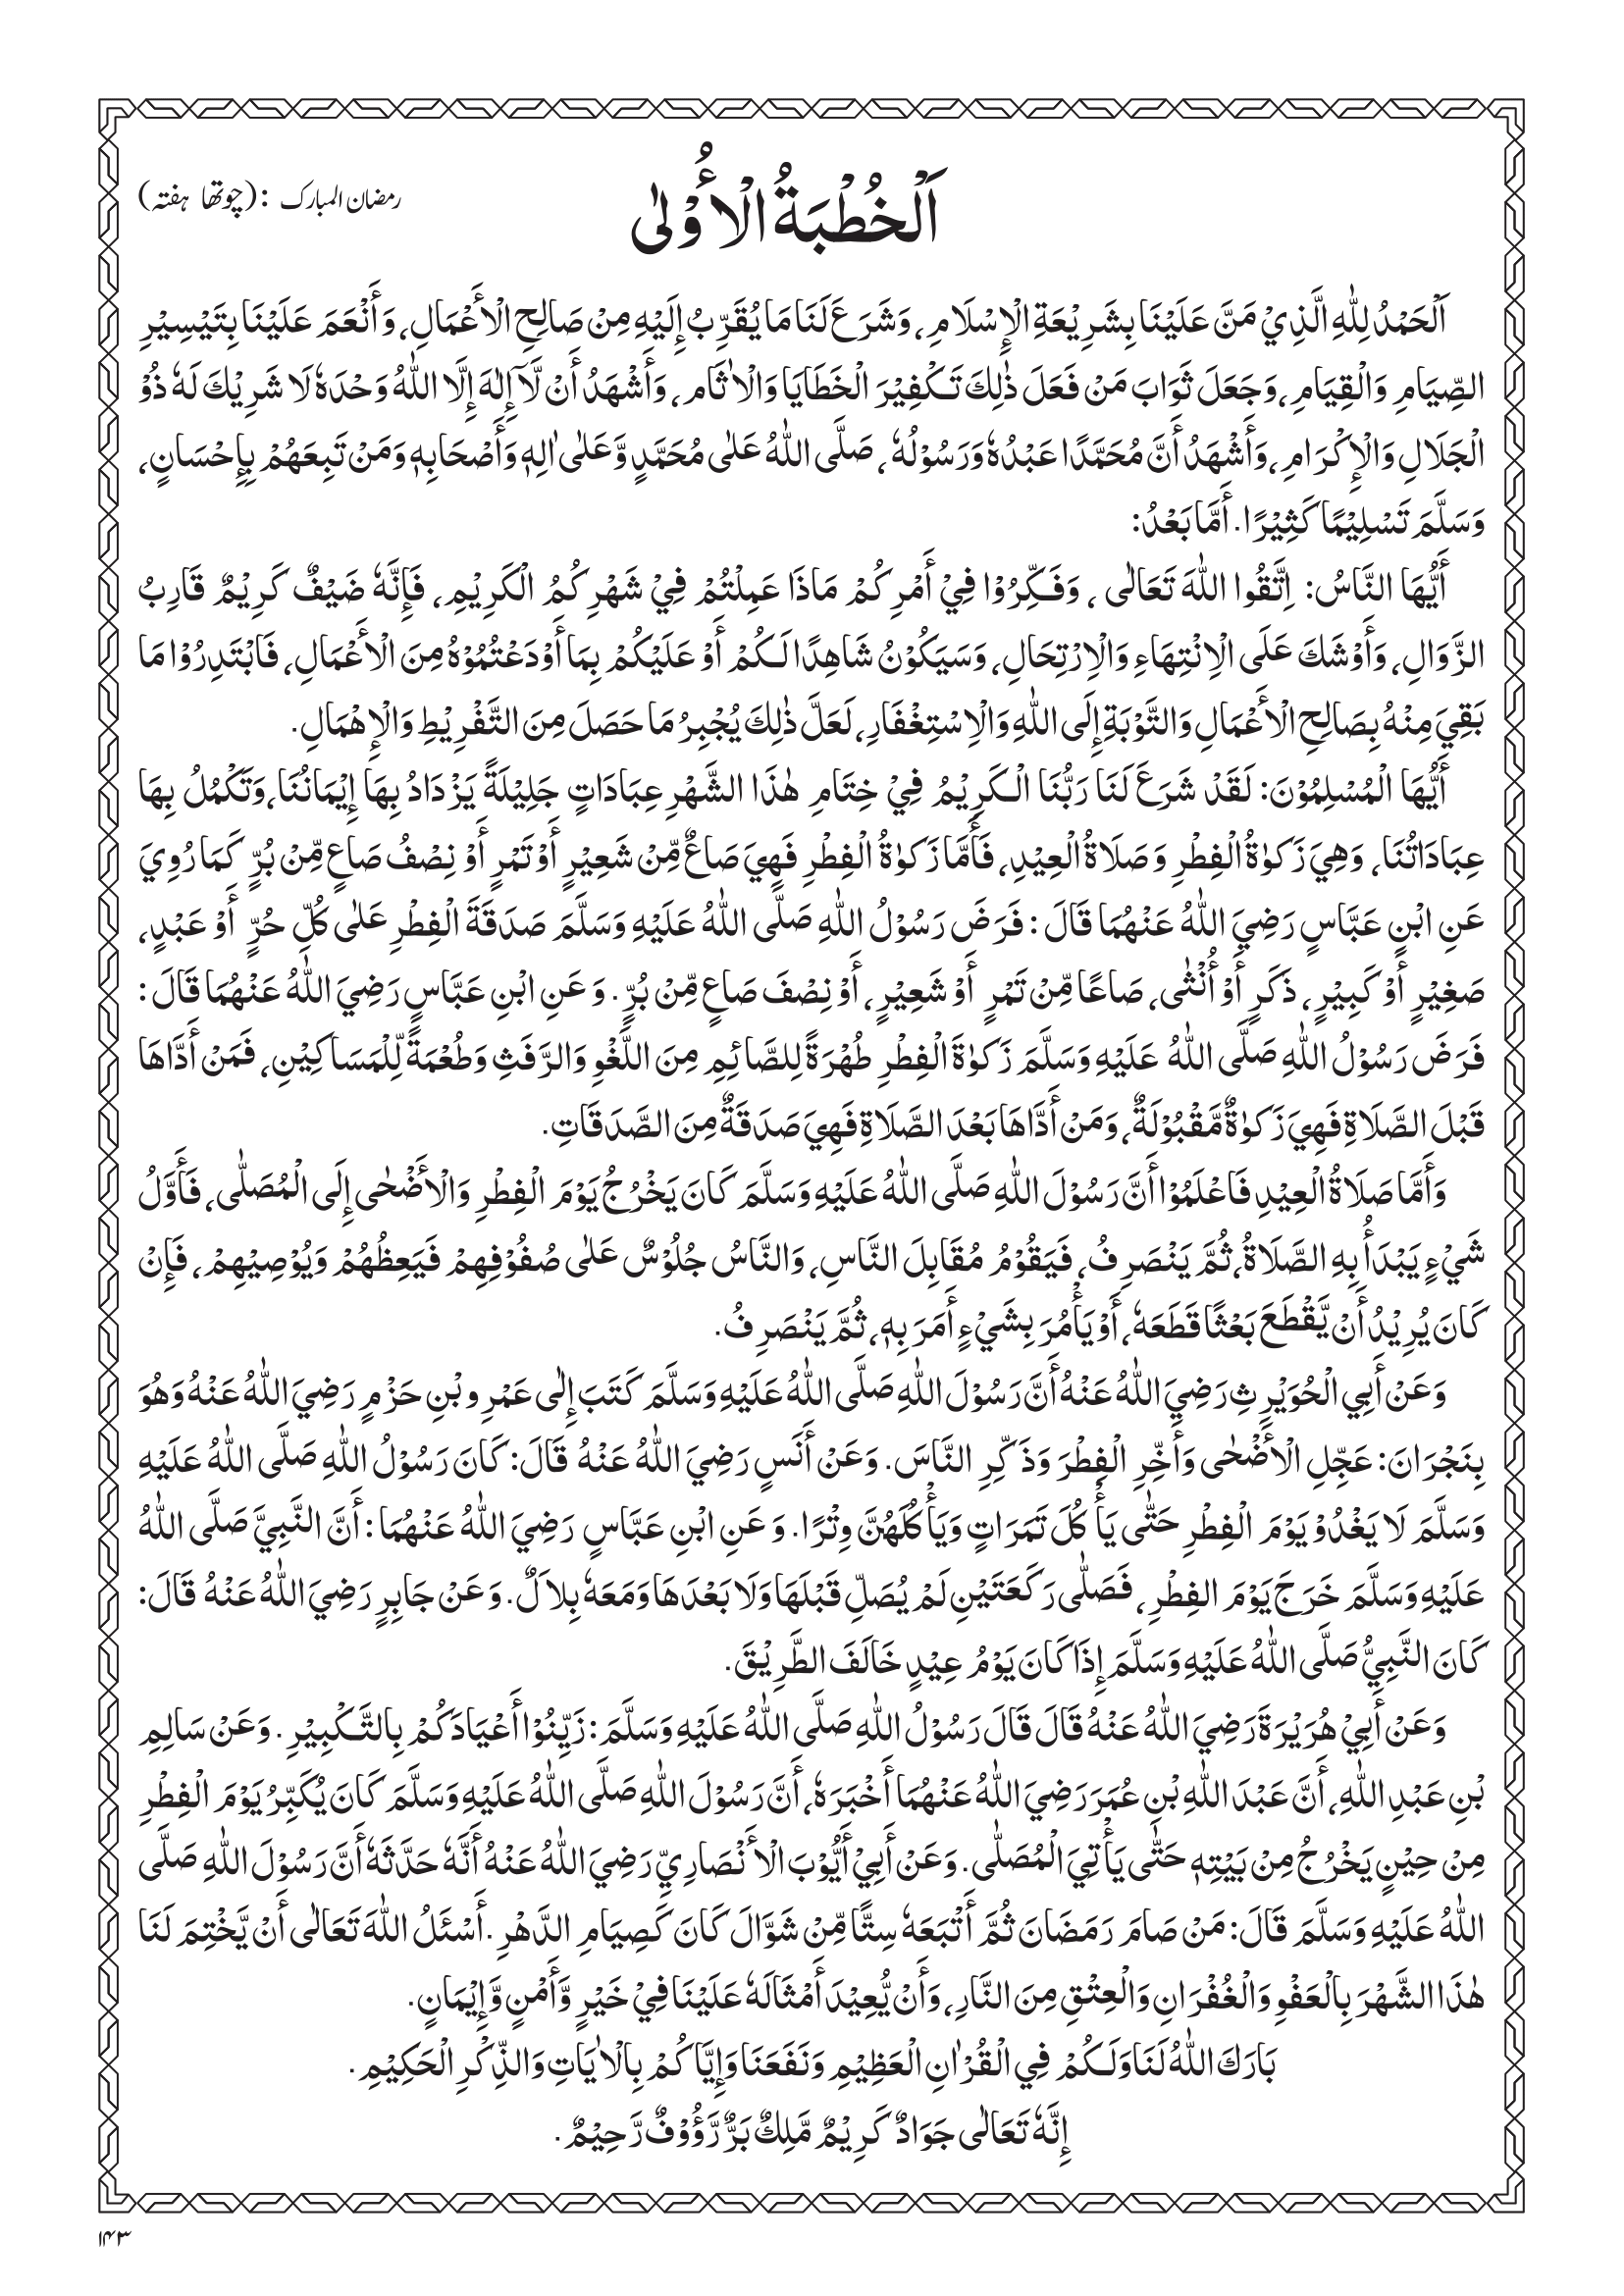 رمضان المبارک :(چوتھا ہفتہ)
اَلْخُطْبَةُ الْأُوْلٰى
اَلْحَمْدُ لِلّٰهِ الَّذِيْ مَنَّ عَلَيْنَا بِشَرِيْعَةِ الْإِسْلَامِ، وَشَرَعَ لَنَا مَا يُقَرِّبُ إِلَيْهِ مِنْ صَالِحِ الْأَعْمَالِ، وَأَنْعَمَ عَلَيْنَا بِتَيْسِيْرِ
الصِّيَامِ وَالْقِيَامِ، وَجَعَلَ ثَوَابَ مَنْ فَعَلَ ذٰلِكَ تَكْفِيْرَ الْخَطَايَا وَالْاٰثَام، وَأَشْهَدُ أَنْ لَّآ إِلٰهَ إِلَّا اللّٰهُ وَحْدَهٗ لَا شَرِيْكَ لَهٗ ذُوْ
الْجَلَالِ وَالْإِكْرَامِ، وَأَشْهَدُ أَنَّ مُحَمَّدًا عَبْدُهٗ وَرَسُوْلُهٗ، صَلَّى اللّٰهُ عَلٰى مُحَمَّدٍ وَّعَلٰى اٰلِهٖ وَأَصْحَابِهٖ وَمَنْ تَبِعَهُمْ بِإِحْسَانٍ،
وَسَلَّمَ تَسْلِيْمًا كَثِيْرًا. أَمَّا بَعْدُ:
أَيُّهَا النَّاسُ: اِتَّقُوا اللّٰهَ تَعَالٰى، وَفَكِّرُوْا فِيْ أَمْرِكُمْ مَاذَا عَمِلْتُمْ فِيْ شَهْرِكُمُ الْكَرِيْمِ، فَإِنَّهٗ ضَيْفٌ كَرِيْمٌ قَارِبُ
الزَّوَالِ، وَأَوْشَكَ عَلَى الْاِنْتِهَاءِ وَالْاِرْتِحَالِ، وَسَيَكُوْنُ شَاهِدًا لَكُمْ أَوْ عَلَيْكُمْ بِمَا أَوْدَعْتُمُوْهُ مِنَ الْأَعْمَالِ، فَابْتَدِرُوْا مَا
بَقِيَ مِنْهُ بِصَالِحِ الْأَعْمَالِ وَالتَّوْبَةِ إِلَى اللّٰهِ وَالْاِسْتِغْفَارِ، لَعَلَّ ذٰلِكَ يُجْبِرُ مَا حَصَلَ مِنَ التَّفْرِيْطِ وَالْإِهْمَالِ.
أَيُّهَا الْمُسْلِمُوْنَ: لَقَدْ شَرَعَ لَنَا رَبُّنَا الْكَرِيْمُ فِيْ خِتَامِ هٰذَا الشَّهْرِ عِبَادَاتٍ جَلِيْلَةً يَزْدَادُ بِهَا إِيْمَانُنَا، وَتَكْمُلُ بِهَا
عِبَادَاتُنَا، وَهِيَ زَكٰوةُ الْفِطْرِ وَصَلَاةُ الْعِيْدِ، فَأَمَّا زَكٰوةُ الْفِطْرِ فَهِيَ صَاعٌ مِّنْ شَعِيْرٍ أَوْ تَمْرٍ أَوْ نِصْفُ صَاعٍ مِّنْ بُرٍّ كَمَا رُوِيَ
عَنِ ابْنِ عَبَّاسٍ رَضِيَ اللّٰهُ عَنْهُمَا قَالَ: فَرَضَ رَسُوْلُ اللّٰهِ صَلَّى اللّٰهُ عَلَيْهِ وَسَلَّمَ صَدَقَةَ الْفِطْرِ عَلٰى كُلِّ حُرٍّ أَوْ عَبْدٍ،
صَغِيْرٍ أَوْ كَبِيْرٍ، ذَكَرٍ أَوْ أُنْثٰى، صَاعًا مِّنْ تَمْرٍ أَوْ شَعِيْرٍ، أَوْ نِصْفَ صَاعٍ مِّنْ بُرٍّ. وَعَنِ ابْنِ عَبَّاسٍ رَضِيَ اللّٰهُ عَنْهُمَا قَالَ:
فَرَضَ رَسُوْلُ اللّٰهِ صَلَّى اللّٰهُ عَلَيْهِ وَسَلَّمَ زَكٰوةَ الْفِطْرِ طُهْرَةً لِلصَّائِمِ مِنَ اللَّغْوِ وَالرَّفَثِ وَطُعْمَةً لِّلْمَسَاكِيْنِ، فَمَنْ أَدَّاهَا
قَبْلَ الصَّلَاةِ فَهِيَ زَكٰوةٌ مَّقْبُوْلَةٌ، وَمَنْ أَدَّاهَا بَعْدَ الصَّلَاةِ فَهِيَ صَدَقَةٌ مِنَ الصَّدَقَاتِ.
وَأَمَّا صَلَاةُ الْعِيْدِ فَاعْلَمُوْا أَنَّ رَسُوْلَ اللّٰهِ صَلَّى اللّٰهُ عَلَيْهِ وَسَلَّمَ كَانَ يَخْرُجُ يَوْمَ الْفِطْرِ وَالْأَضْحٰى إِلَى الْمُصَلّٰى، فَأَوَّلُ
شَيْءٍ يَبْدَأُ بِهِ الصَّلَاةُ، ثُمَّ يَنْصَرِفُ، فَيَقُوْمُ مُقَابِلَ النَّاسِ، وَالنَّاسُ جُلُوْسٌ عَلٰى صُفُوْفِهِمْ فَيَعِظُهُمْ وَيُوْصِيْهِمْ، فَإِنْ
كَانَ يُرِيْدُ أَنْ يَّقْطَعَ بَعْثًا قَطَعَهٗ، أَوْ يَأْمُرَ بِشَيْءٍ أَمَرَ بِهٖ، ثُمَّ يَنْصَرِفُ.
وَعَنْ أَبِي الْحُوَيْرِثِ رَضِيَ اللّٰهُ عَنْهُ أَنَّ رَسُوْلَ اللّٰهِ صَلَّى اللّٰهُ عَلَيْهِ وَسَلَّمَ كَتَبَ إِلٰى عَمْرِو بْنِ حَزْمٍ رَضِيَ اللّٰهُ عَنْهُ وَهُوَ
بِنَجْرَانَ: عَجِّلِ الْأَضْحٰى وَأَخِّرِ الْفِطْرَ وَذَكِّرِ النَّاسَ. وَعَنْ أَنَسٍ رَضِيَ اللّٰهُ عَنْهُ قَالَ: كَانَ رَسُوْلُ اللّٰهِ صَلَّى اللّٰهُ عَلَيْهِ
وَسَلَّمَ لَا يَغْدُوْ يَوْمَ الْفِطْرِ حَتّٰى يَأْكُلَ تَمَرَاتٍ وَيَأْكُلَهُنَّ وِتْرًا. وَعَنِ ابْنِ عَبَّاسٍ رَضِيَ اللّٰهُ عَنْهُمَا: أَنَّ النَّبِيَّ صَلَّى اللّٰهُ
عَلَيْهِ وَسَلَّمَ خَرَجَ يَوْمَ الفِطْرِ، فَصَلّٰى رَكَعَتَيْنِ لَمْ يُصَلِّ قَبْلَهَا وَلَا بَعْدَهَا وَمَعَهٗ بِلاَلٌ. وَعَنْ جَابِرٍ رَضِيَ اللّٰهُ عَنْهُ قَالَ:
كَانَ النَّبِيُّ صَلَّى اللّٰهُ عَلَيْهِ وَسَلَّمَ إِذَا كَانَ يَوْمُ عِيْدٍ خَالَفَ الطَّرِيْقَ.
وَعَنْ أَبِيْ هُرَيْرَةَ رَضِيَ اللّٰهُ عَنْهُ قَالَ قَالَ رَسُوْلُ اللّٰهِ صَلَّى اللّٰهُ عَلَيْهِ وَسَلَّمَ: زَيِّنُوْا أَعْيَادَكُمْ بِالتَّكْبِيْرِ. وَعَنْ سَالِمِ
بْنِ عَبْدِ اللّٰهِ، أَنَّ عَبْدَ اللّٰهِ بْنِ عُمَرَ رَضِيَ اللّٰهُ عَنْهُمَا أَخْبَرَهٗ، أَنَّ رَسُوْلَ اللّٰهِ صَلَّى اللّٰهُ عَلَيْهِ وَسَلَّمَ كَانَ يُكَبِّرُ يَوْمَ الْفِطْرِ
مِنْ حِيْنٍ يَخْرُجُ مِنْ بَيْتِهٖ حَتّٰى يَأْتِيَ الْمُصَلّٰى. وَعَنْ أَبِيْ أَيُّوْبَ الْأَنْصَارِيِّ رَضِيَ اللّٰهُ عَنْهُ أَنَّهٗ حَدَّثَهٗ أَنَّ رَسُوْلَ اللّٰهِ صَلَّى
اللّٰهُ عَلَيْهِ وَسَلَّمَ قَالَ: مَنْ صَامَ رَمَضَانَ ثُمَّ أَتْبَعَهٗ سِتًّا مِّنْ شَوَّالَ كَانَ كَصِيَامِ الدَّهْرِ. أَسْئَلُ اللّٰهَ تَعَالٰى أَنْ يَّخْتِمَ لَنَا
هٰذَا الشَّهْرَ بِالْعَفْوِ وَالْغُفْرَانِ وَالْعِتْقِ مِنَ النَّارِ، وَأَنْ يُّعِيْدَ أَمْثَالَهٗ عَلَيْنَا فِيْ خَيْرٍ وَّأَمْنٍ وَّإِيْمَانٍ.
بَارَكَ اللّٰهُ لَنَا وَلَكُمْ فِي الْقُرْاٰنِ الْعَظِيْمِ وَنَفَعَنَا وَإِيَّاكُمْ بِالْاٰيَاتِ وَالذِّكْرِ الْحَكِيْمِ.
إِنَّهٗ تَعَالٰى جَوَادٌ كَرِيْمٌ مَّلِكٌ بَرٌّ رَّؤُوْفٌ رَّحِيْمٌ.
۱۴۳